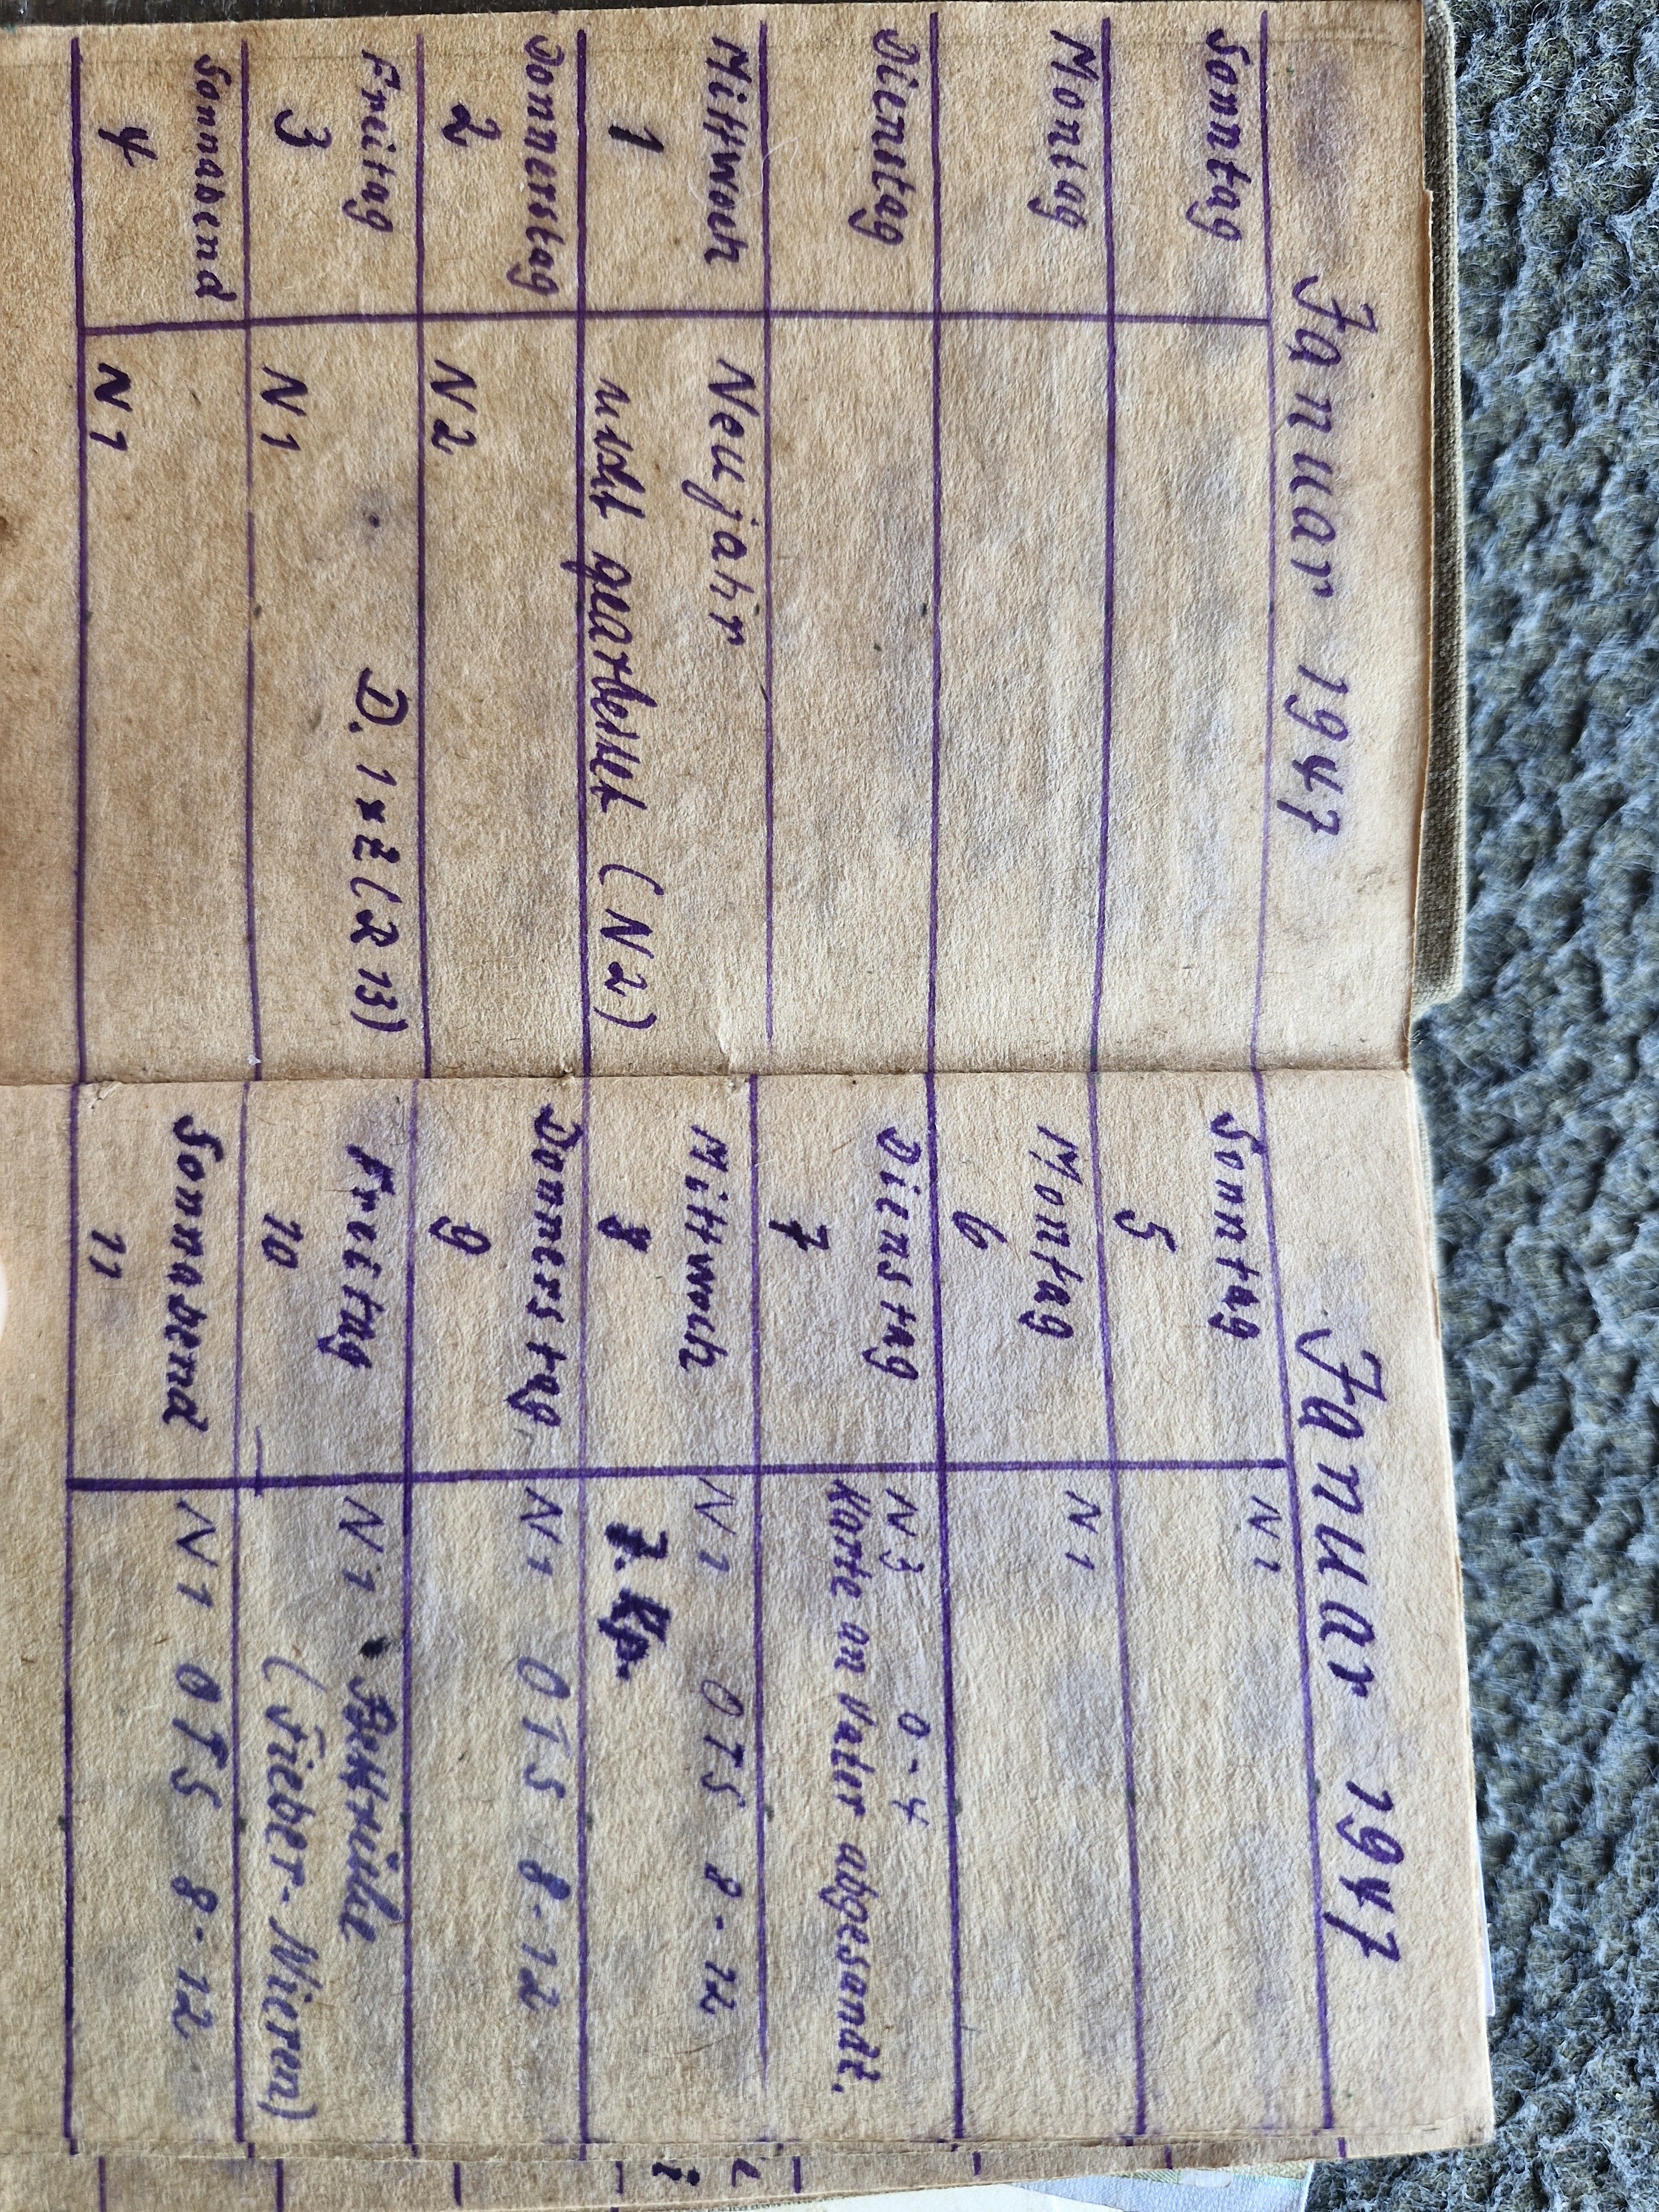 Januar 1947
Sonntag
Montag
Dienstag
Mittwoch Neujahr
1 nicht gearbeitet (N2)
Donnerstag
2 N2
Freitag D. 1x2 (2 13)
3 N1
Sonnabend
4 N1
Januar 1947
Sonntag N1
5
Montag N1
6
Dienstag N3 0-4
7 Karte an Vater abgesandt.
Mittwoch N1 OTS 8-12
8 7. Kp.
Donnerstag N1 OTS 8-12
9
Freitag N1 Bettruhe
10 (Fieber-Nieren)
Sonnabend N1 OTS 8-12
11